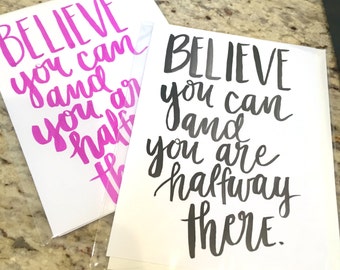 BELIEVE
you can
and
you are
halfway
th
BELIEVE
you can
and
you are
halfway
there.